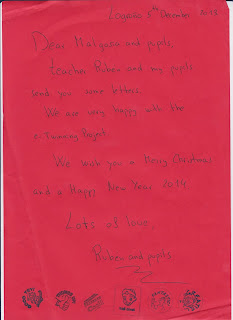 Logroño 5th December 2013
Dear Małgosia and pupils,
teacher Ruben and my pupils
send you some letters.
We are very happy with the
e-Twinning Project.
We wish you a Merry Christmas
and a Happy New Year 2014
Lots of love,
Ruben and pupils